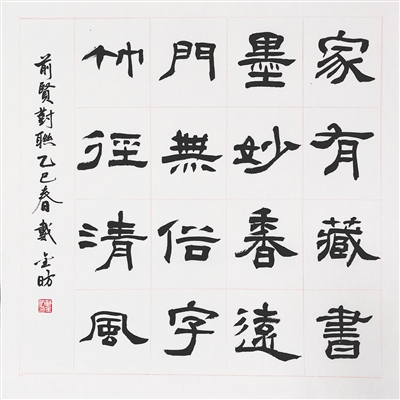 家有藏書
墨妙香遠
門無俗字
竹徑清風
前賢對聯乙巳春戴金昉